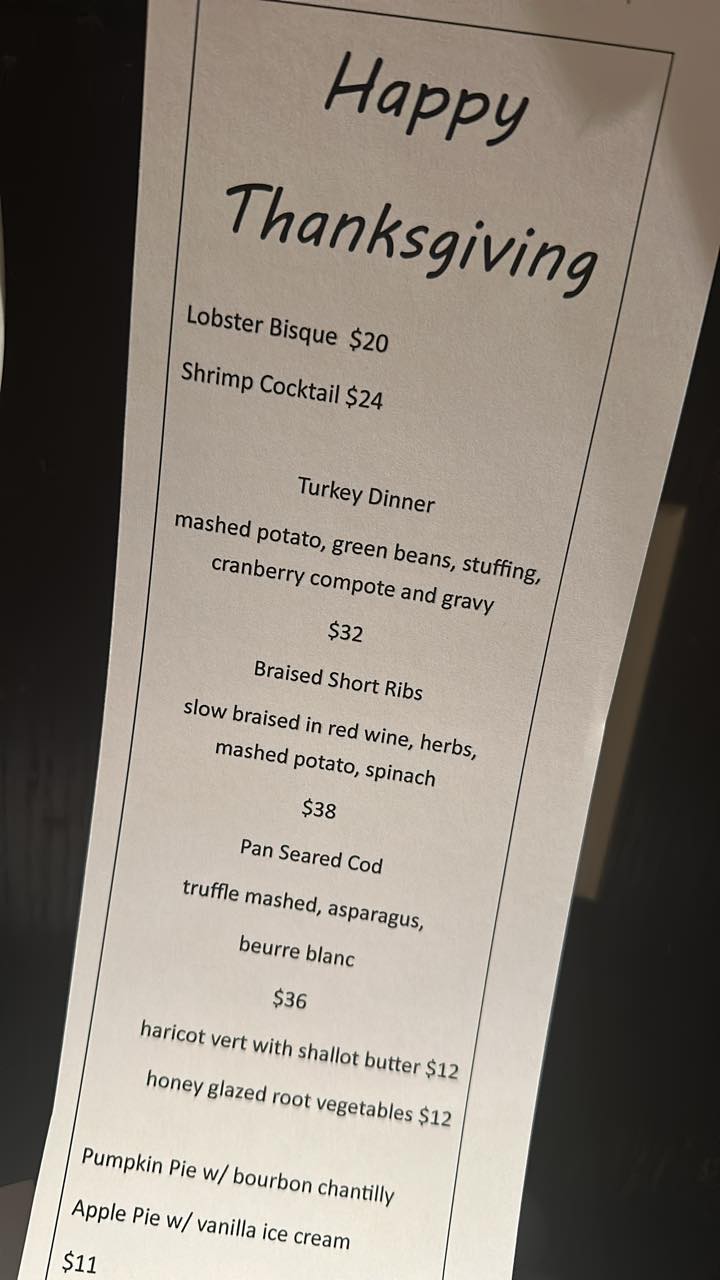 Happy
Thanksgiving
Lobster Bisque $20
Shrimp Cocktail $24
Turkey Dinner
mashed potato, green beans, stuffing,
cranberry compote and gravy
$32
Braised Short Ribs
slow braised in red wine, herbs,
mashed potato, spinach
$38
Pan Seared Cod
truffle mashed, asparagus,
beurre blanc
$36
haricot vert with shallot butter $12
honey glazed root vegetables $12
Pumpkin Pie w/ bourbon chantilly
Apple Pie w/ vanilla ice cream
$11